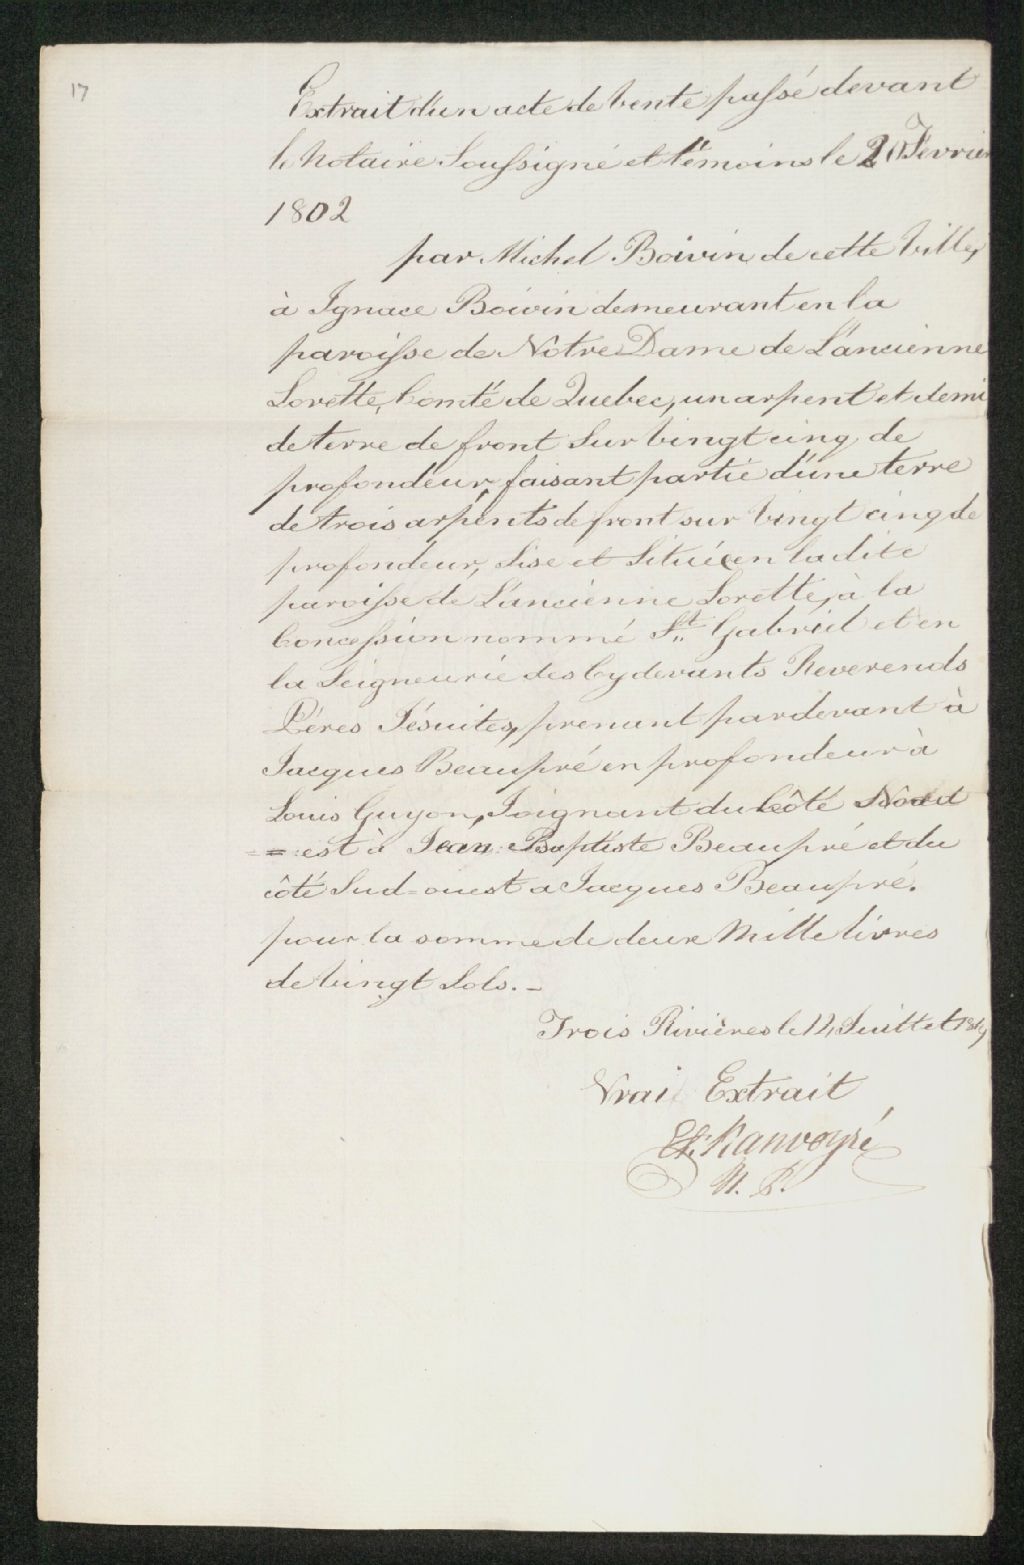 17
Extrait d'un acte de Vente passé devant
le Notaire Soussigné et témoins le 20 Fevrier
1802
par Michel Boivin de cette Ville,
à Ignace Boivin demeurant en la
paroisse de Notre Dame de L'ancienne
Lorette, Comté de Quebec, un arpent et demi
de terre de front Sur Vingt cinq de
profondeur, faisant partie d'une terre
de trois arpents de front sur Vingt cinq de
profondeur, Sise et Située en ladite
paroisse de L'ancienne Lorette, à la
Concession nommé St. Gabriel et en
la Seigneurie des Cydevants Reverends
Péres Jésuites, prenant pardevant à
Jacques Beaupré en profondeur à
Louis Guyon, Joignant du Côté Nord
= est à Jean Baptiste Beaupré et du
côté Sud=ouest a Jacques Beaupré.
pour la somme de deux Mille livres
de Vingt Sols. –
Trois Rivières le Juillet
Vrai Extrait
Et. Ranvoyzé
N. P.